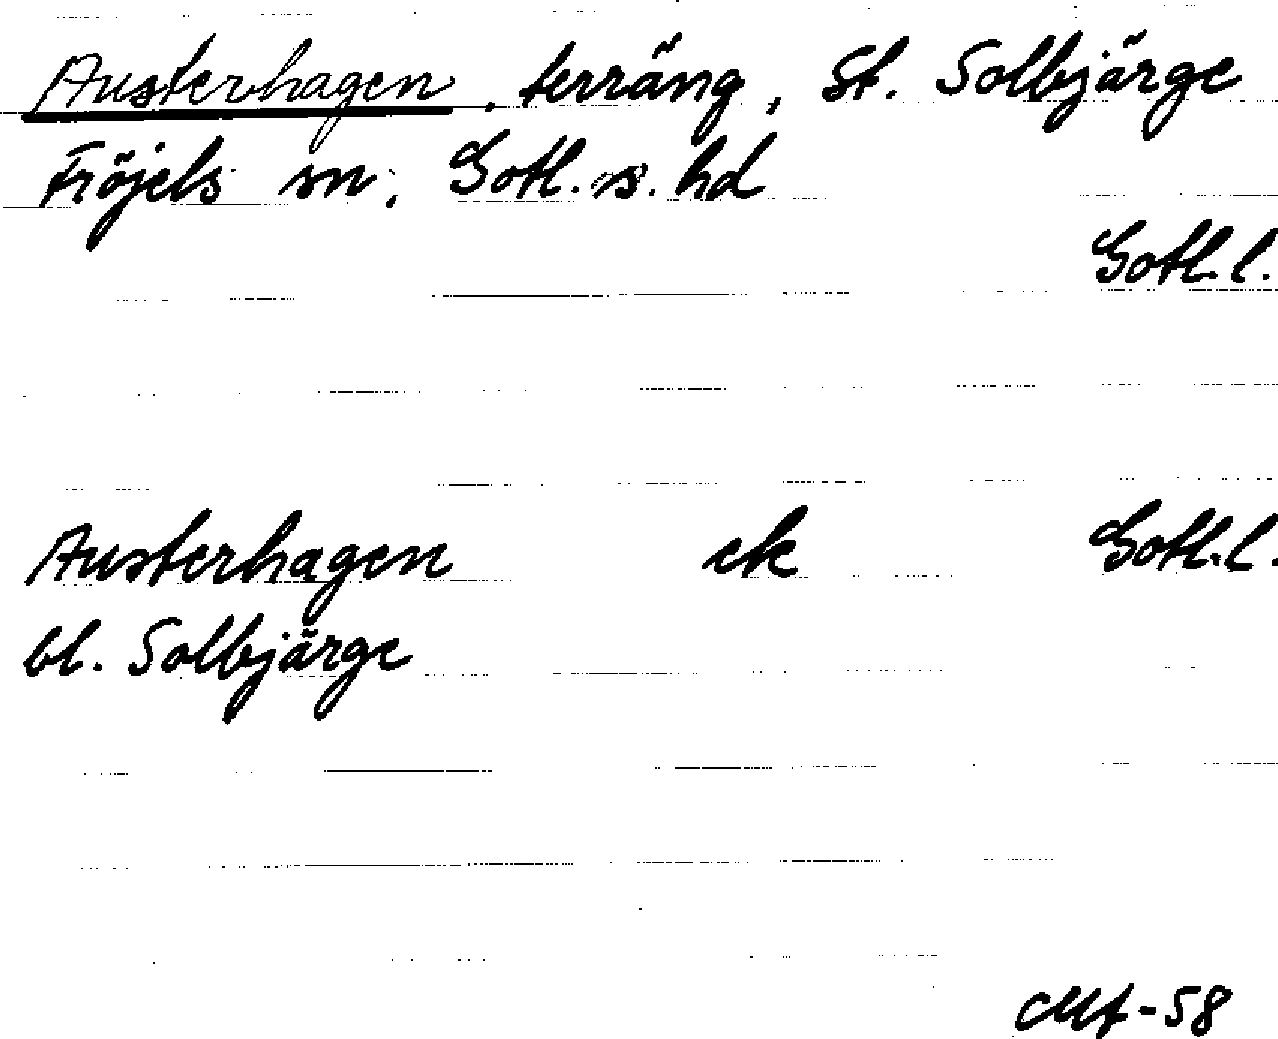 Austerhagen, terräng, St. Solbjärge
Fröjels sn, Gotl. s. hd
Gotl. l.
Austerhagen ek Gotl. l.
bl. Solbjärge
-58